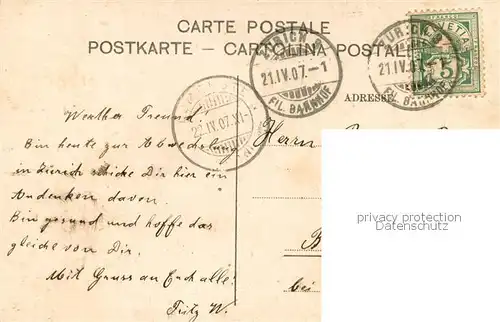 CARTE POSTALE
POSTKARTE - CARTOLINA POSTALE
ZÜRICH 21.IV.07.-1 FIL. BAHNHOF
ZÜRICH 21.IV.07 FIL. BAHNHOF
HELVETIA
5
21.IV.07.XI-
ADRESSE
Werther Freund
Bin heute zur Abwechslug
in Zürich schicke Dir hier ein
Andenken davon.
Bin gesund und hoffe das
gleiche von Dir.
Mit Gruss an Euch alle!
Fritz W.
Herrn
B
bei
privacy protection
Datenschutz